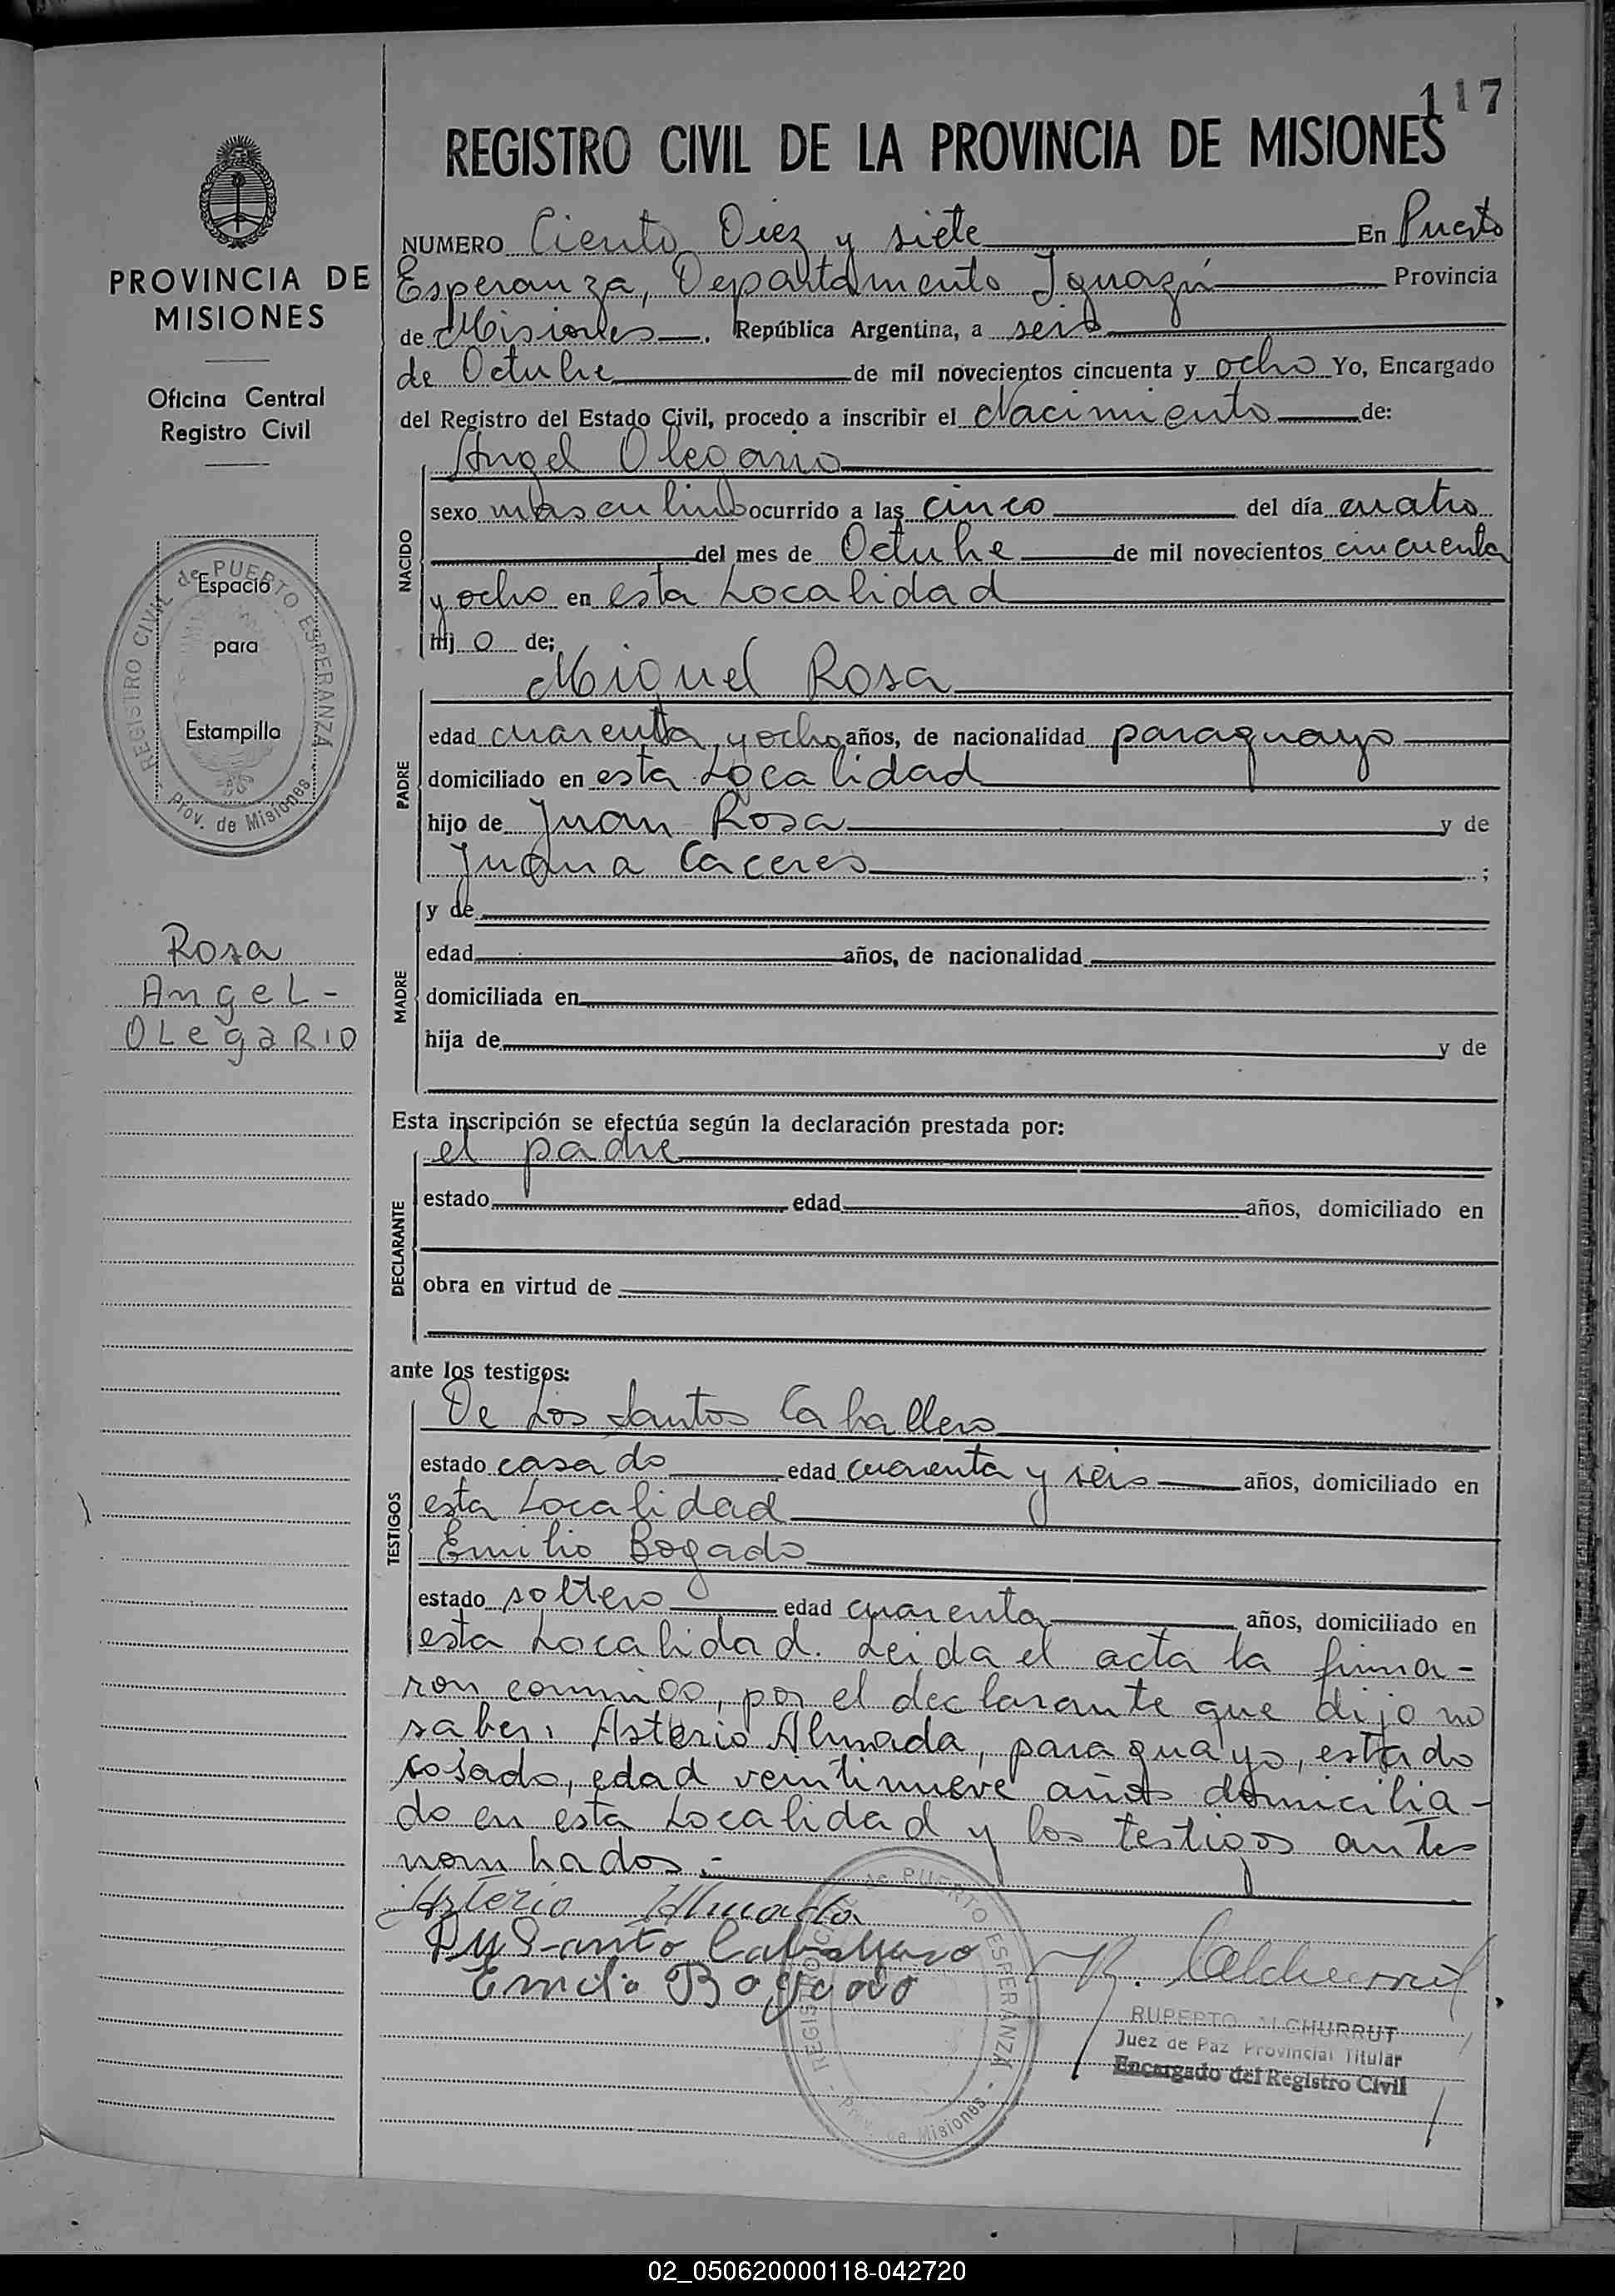 117
REGISTRO CIVIL DE LA PROVINCIA DE MISIONES
PROVINCIA DE
MISIONES
Oficina Central
Registro Civil
REGISTRO CIVIL de PUERTO ESPERANZA
Prov. de Misiones
Espacio
para
Estampilla
Rosa
Angel-
OLegaRIO
NUMERO Ciento Diez y siete En Puerto
Esperanza, Departamento Iguazú Provincia
de Misiones. República Argentina, a seis
de Octubre de mil novecientos cincuenta y ocho Yo, Encargado
del Registro del Estado Civil, procedo a inscribir el Nacimiento de:
Angel Olegario
NACIDO
sexo masculino ocurrido a las cinco del día cuatro
del mes de Octubre de mil novecientos cincuenta
y ocho en esta Localidad
hij o de;
Miguel Rosa
PADRE
edad cuarenta y ocho años, de nacionalidad paraguayo
domiciliado en esta Localidad
hijo de Juan Rosa y de
Juana Caceres ;
MADRE
y de
edad años, de nacionalidad
domiciliada en
hija de y de
Esta inscripción se efectúa según la declaración prestada por:
el padre
DECLARANTE
estado edad años, domiciliado en
obra en virtud de
ante los testigos:
De Los Santos Caballero
TESTIGOS
estado casado edad cuarenta y seis años, domiciliado en
esta Localidad
Emilio Bogado
estado soltero edad cuarenta años, domiciliado en
esta Localidad. Leida el acta la firma-
ron conmigo, por el declarante que dijo no
saber, Asterio Almada, paraguayo, estado
casado, edad veintinueve años domicilia-
do en esta Localidad y los testigos antes
nombrados.-
Asterio Almada
Santo Caballero
Emilio Bogado
REGISTRO CIVIL de PUERTO ESPERANZA
Prov. de Misiones
RUPERTO ALCHURRUT
Juez de Paz Provincial Titular
Encargado del Registro Civil
02_050620000118-042720